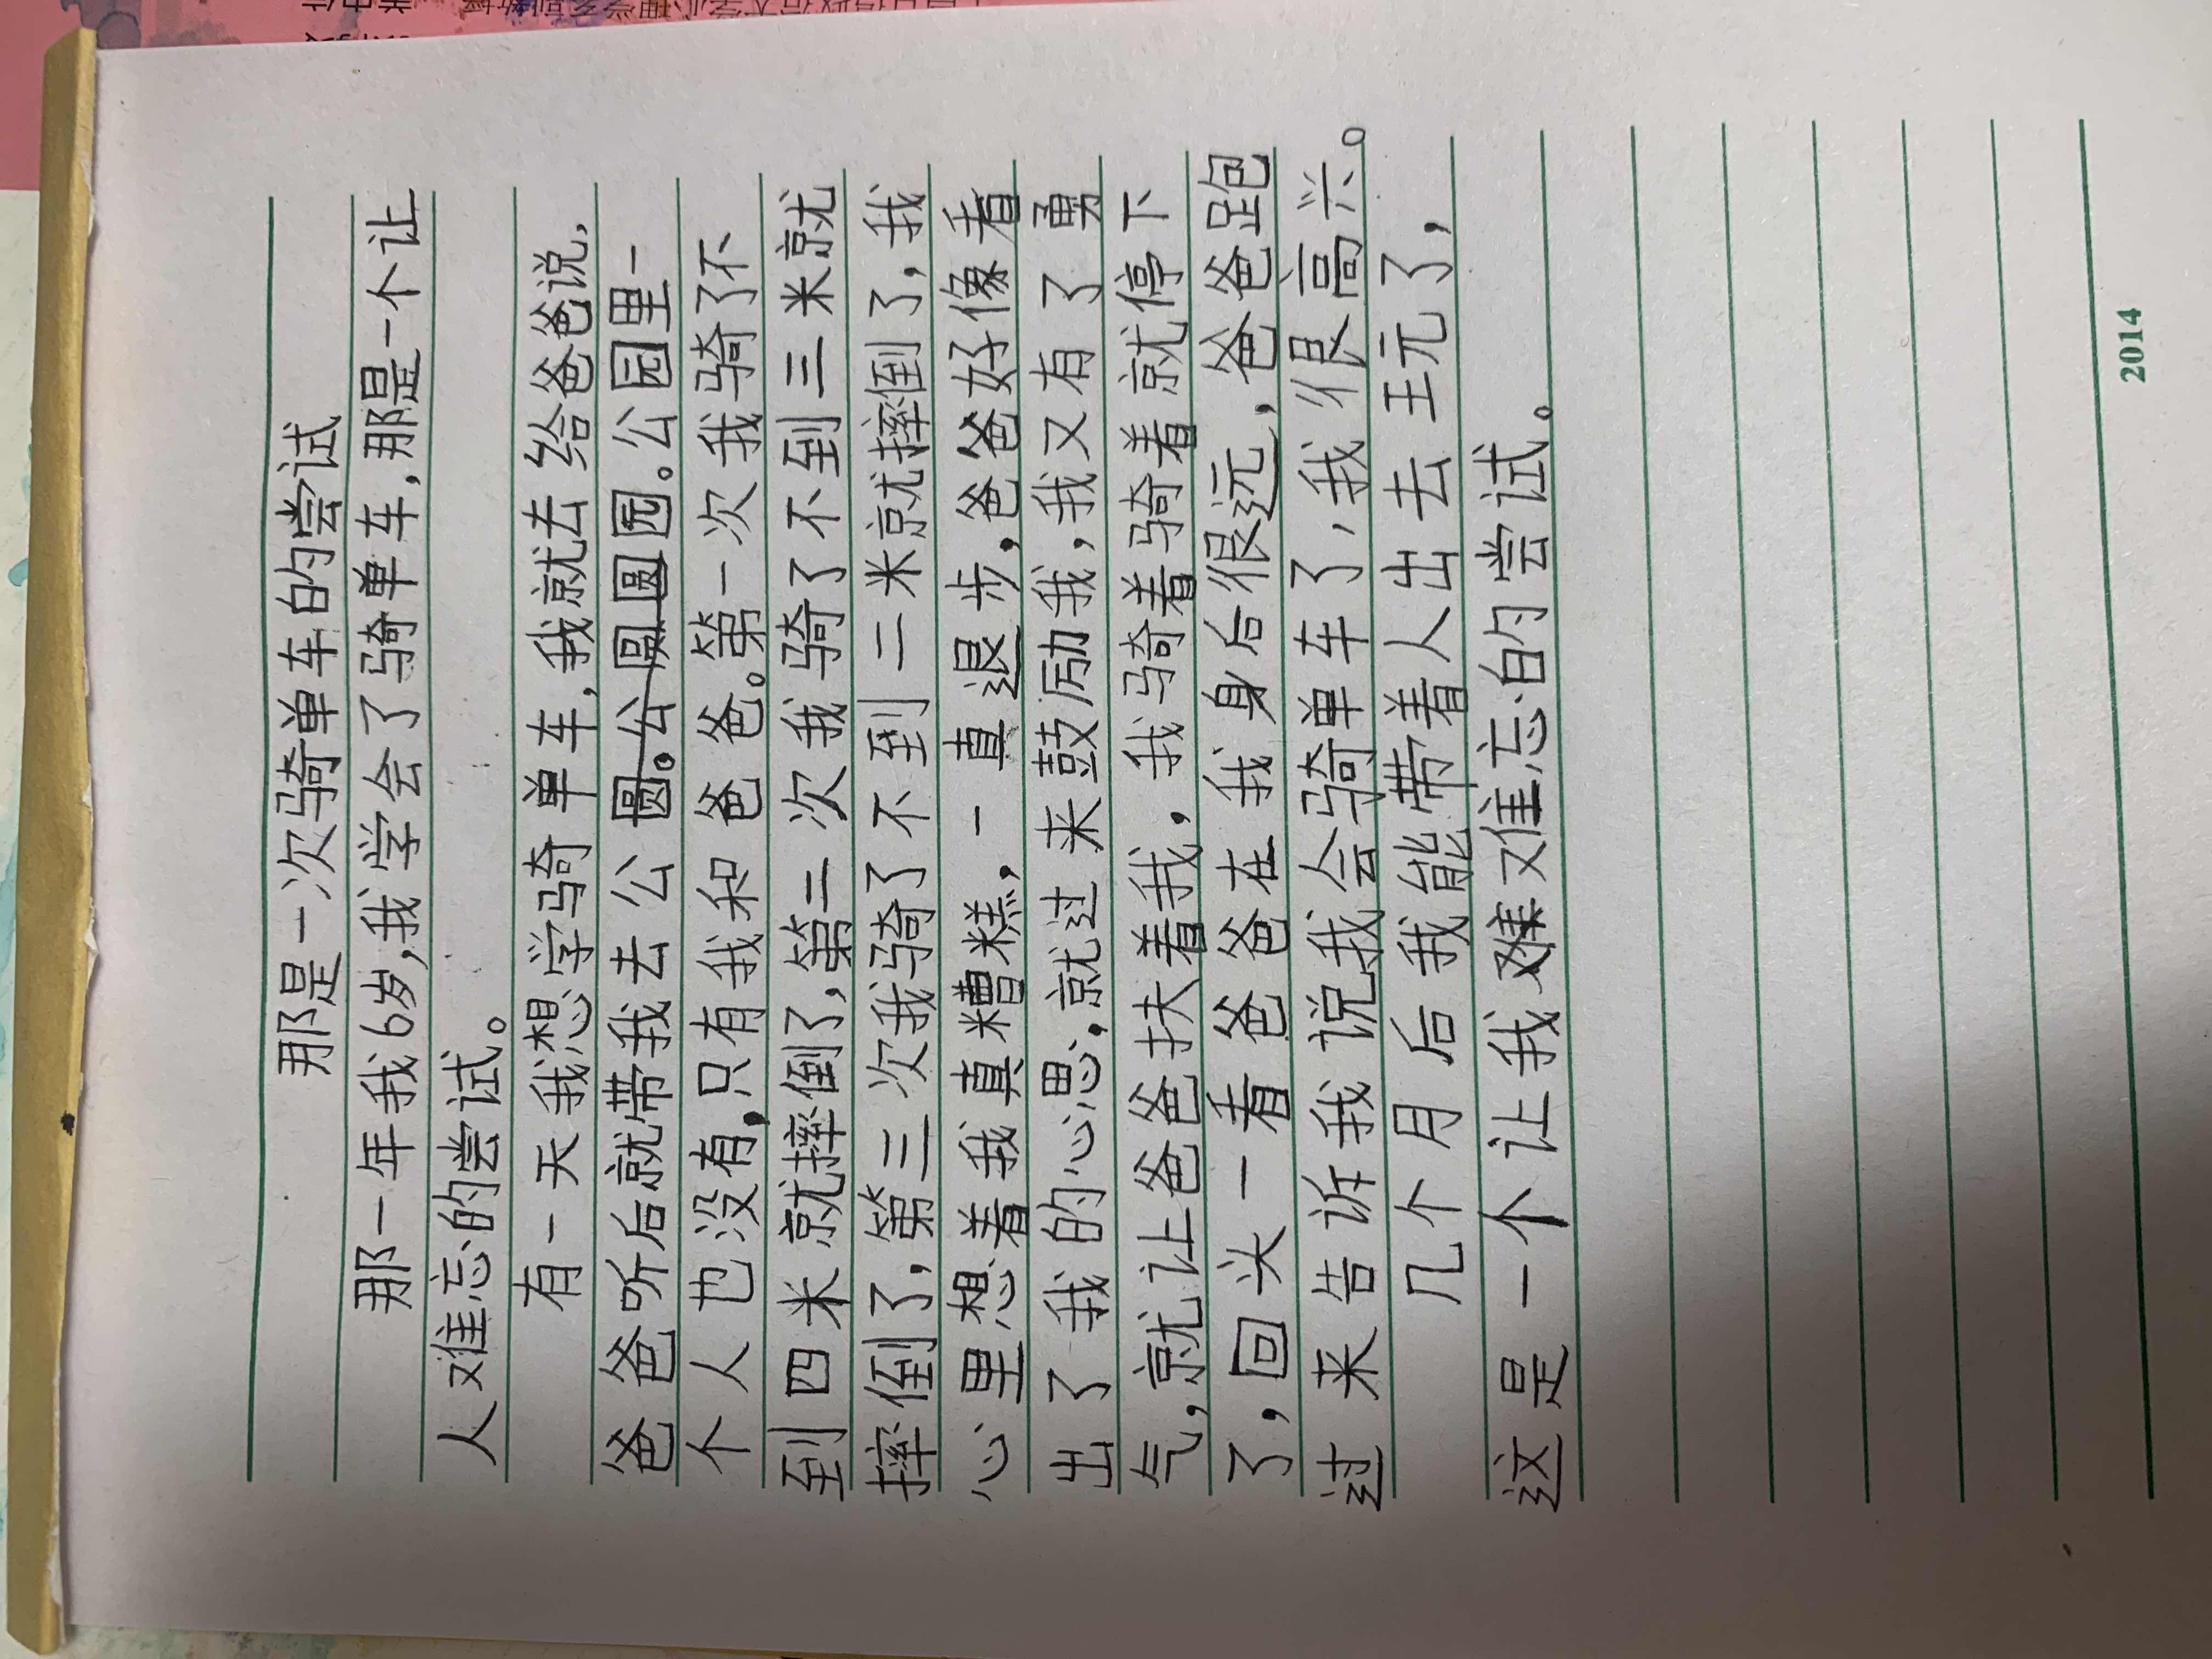 那是一次骑单车的尝试
那一年我6岁,我学会了骑单车,那是一个让
人难忘的尝试。
有一天我想学骑单车,我就去给爸爸说,
爸爸听后就带我去公园。公园里一
个人也没有,只有我和爸爸。第一次我骑了不
到四米就摔倒了,第二次我骑了不到三米就
摔倒了,第三次我骑了不到二米就摔倒了,我
心里想着我真糟糕,一直退步,爸爸好像看
出了我的心思,就过来鼓励我,我又有了勇
气,就让爸爸扶着我,我骑着骑着就停下
了,回头一看爸爸在我身后很远,爸爸跑
过来告诉我说我会骑单车了,我很高兴。
几个月后我能带着人出去王元了,
这是一个让我难忘的尝试。
2014